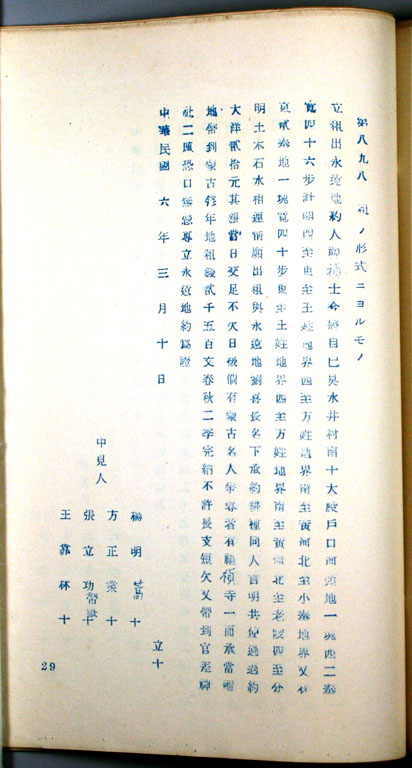 第八九八 租ノ形式ニヨルモノ
立租出永遠地約人 補士今將自己見水井村南十大股戶口河頭地一塊四二
寬四十六步計 四至東至王姓地界西至万姓地界南至黃河北至小 地界又有
東貳 地一塊寬四十步東至土姓地界西至万姓地界南至黃河北至老 四至分
明土木石水相連 願出租與永遠地劉喜長名下承約耕種同人言明共 過過約
大洋貳拾元其 當日交足不欠日後倘有蒙古名人爭奪者有 楨寺一面承當
地帶到蒙古 年地租 貳千五百文春秋二季完納不許長支短欠又帶到官差神
社二 恐口無憑專立永遠地約為證
中華民國 六年三月十日
中見人
楊明 十
方正 十
張立功 十
王 林十
立十
29